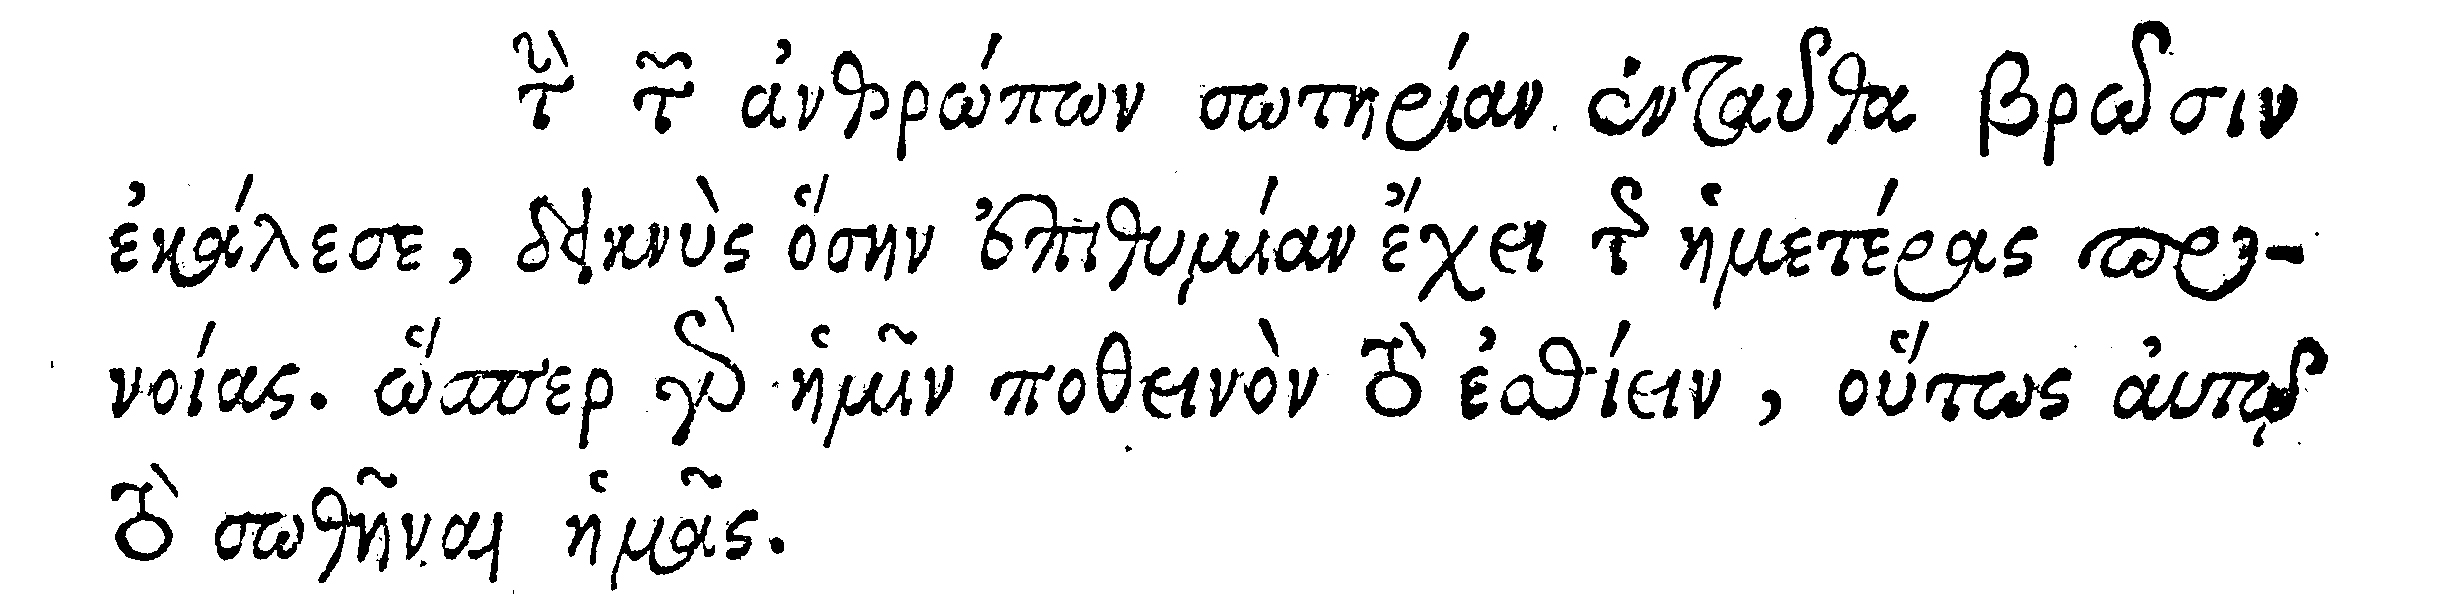 τὴν τῶν ἀνθρώπων σωτηρίαν ἐνταῦθα βρῶσιν
ἐκάλεσε, δεικνὺς ὅσην ἐπιθυμίαν ἔχει τῆς ἡμετέρας προ-
νοίας. ὥσπερ γὰρ ἡμῖν ποθεινὸν τὸ ἐσθίειν, οὕτως αὐτῷ
τὸ σωθῆναι ἡμᾶς.